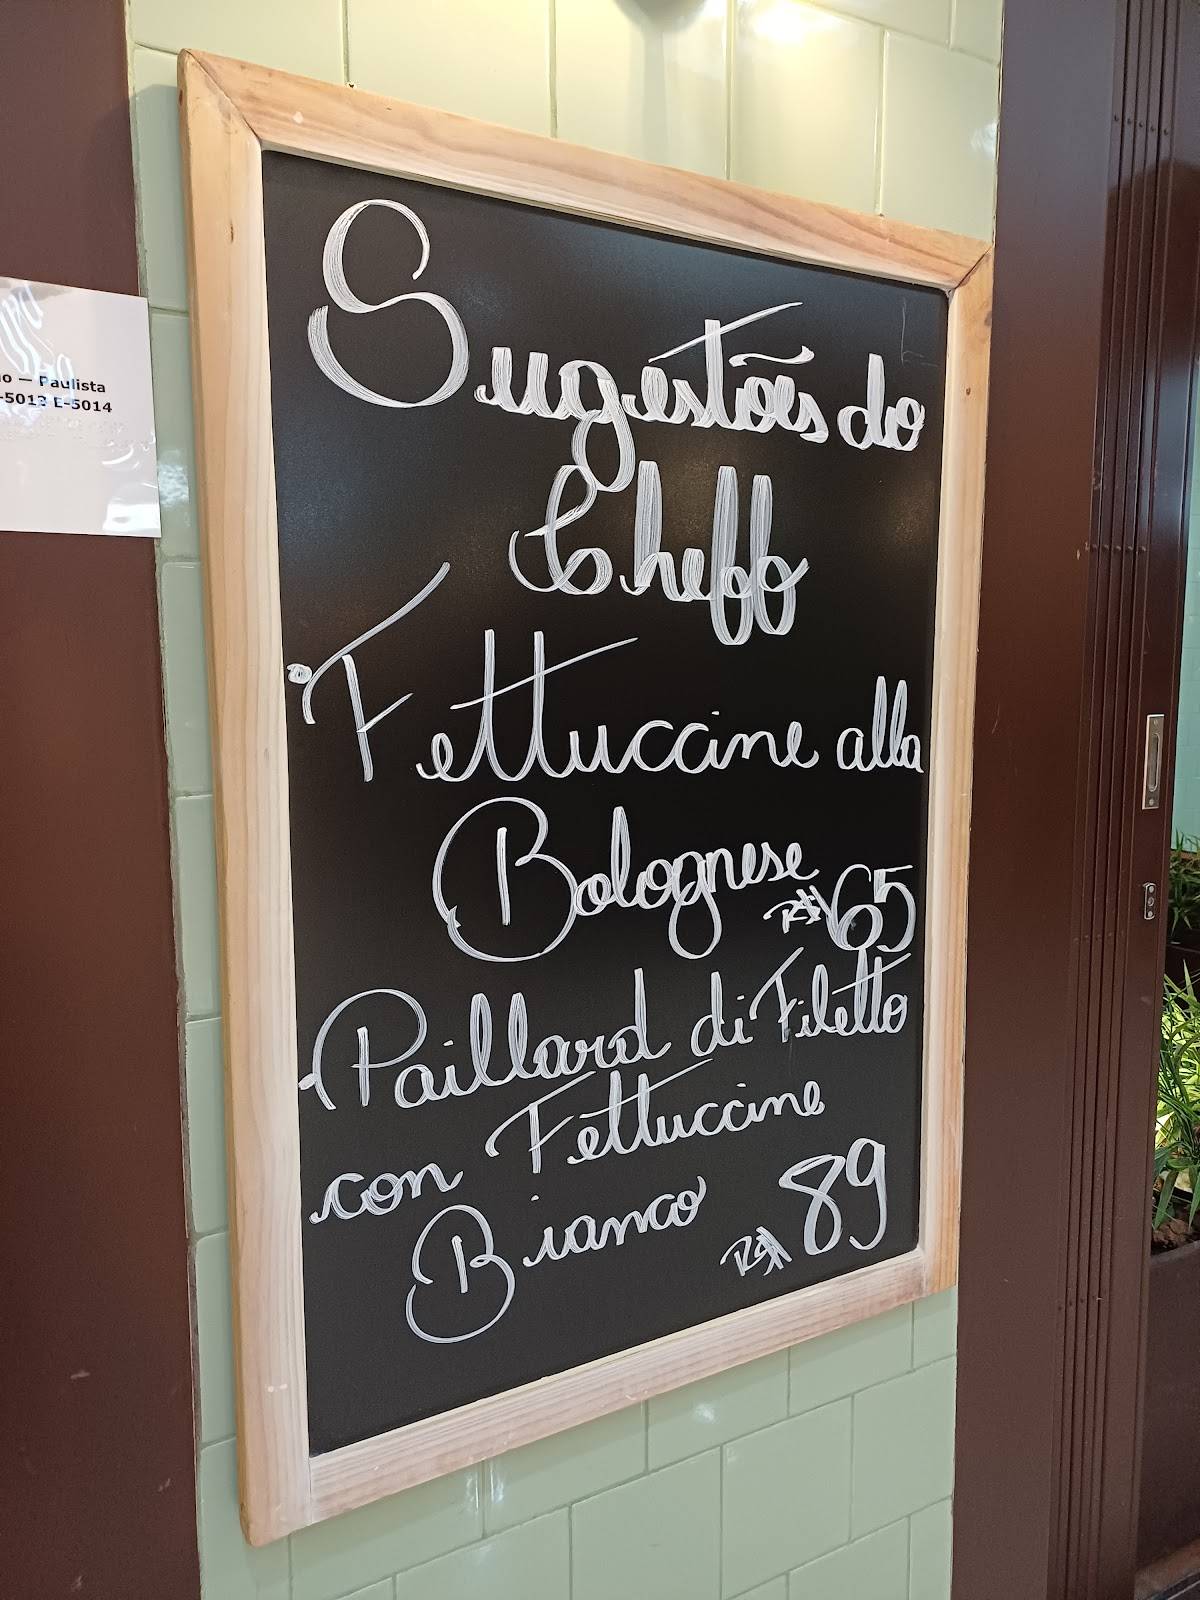 o — Paulista
-5012 E-5014
Sugestões do
Cheff
Fettuccine alla
Bolognese
R$ 65
Paillard di Filetto
con Fettuccine
Bianco R$ 89